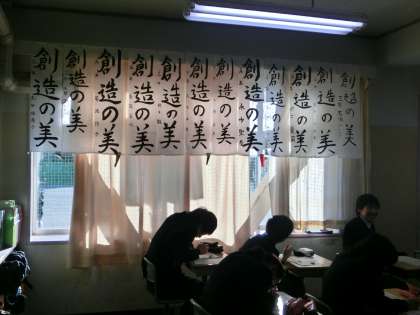 創造の美
創造の美
創造の美
創造の美
創造の美
創造の美
創造の美
創造の美
創造の美
創造の美
創造の美
創造の美